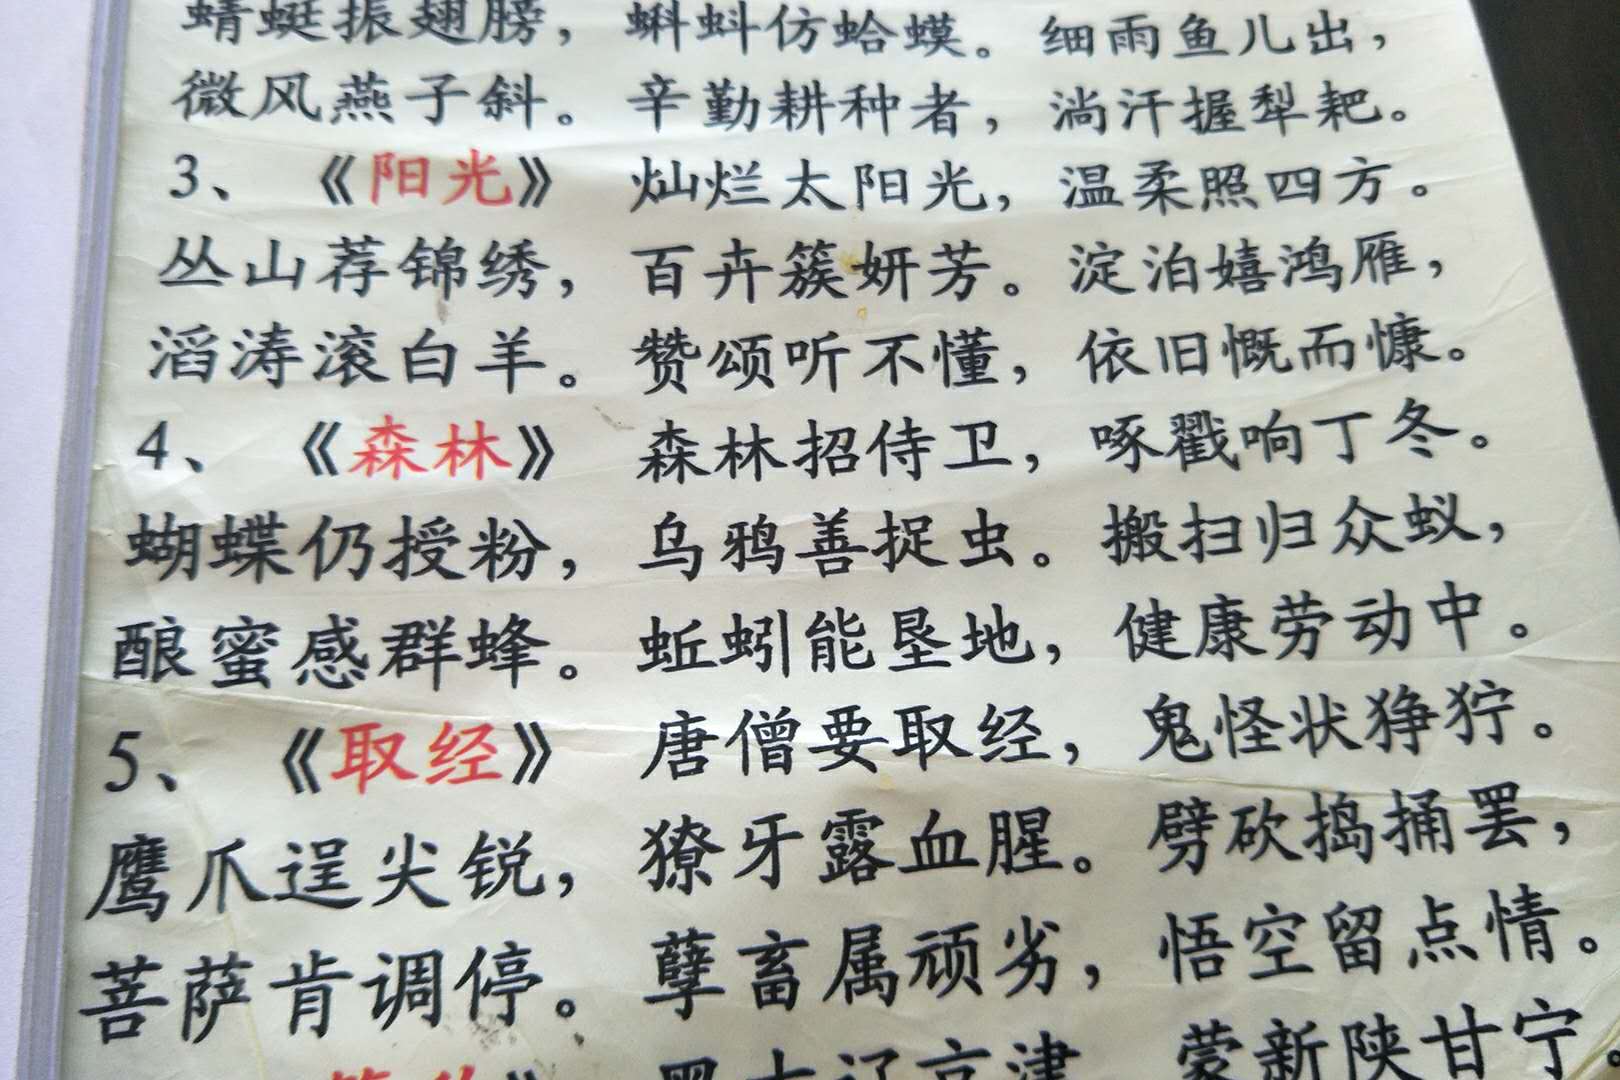 蜻蜓振翅膀，蝌蚪仿蛤蟆。细雨鱼儿出，
微风燕子斜。辛勤耕种者，淌汗握犁耙。
3、《阳光》 灿烂太阳光，温柔照四方。
丛山荐锦绣，百卉簇妍芳。淀泊嬉鸿雁，
滔涛滚白羊。赞颂听不懂，依旧慨而慷。
4、《森林》 森林招侍卫，啄戳响丁冬。
蝴蝶仍授粉，乌鸦善捉虫。搬扫归众蚁，
酿蜜感群蜂。蚯蚓能垦地，健康劳动中。
5、《取经》 唐僧要取经，鬼怪状狰狞。
鹰爪逞尖锐，獠牙露血腥。劈砍捣捅罢，
菩萨肯调停。孽畜属顽劣，悟空留点情。
》 黑吉辽京津，蒙新陕甘宁。